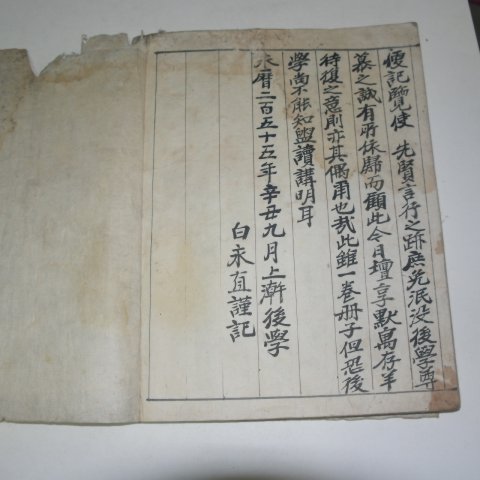 便記覽使 先賢言行之跡庶免泯没後學尊
慕之誠有所依歸而顧此令月壇享默寓存羊
待復之意則亦其偶爾也哉此雖一卷册子但恐後
學尚不能知盥讀講明耳
永曆二百五十五年辛丑九月上澣後學
白永直謹記